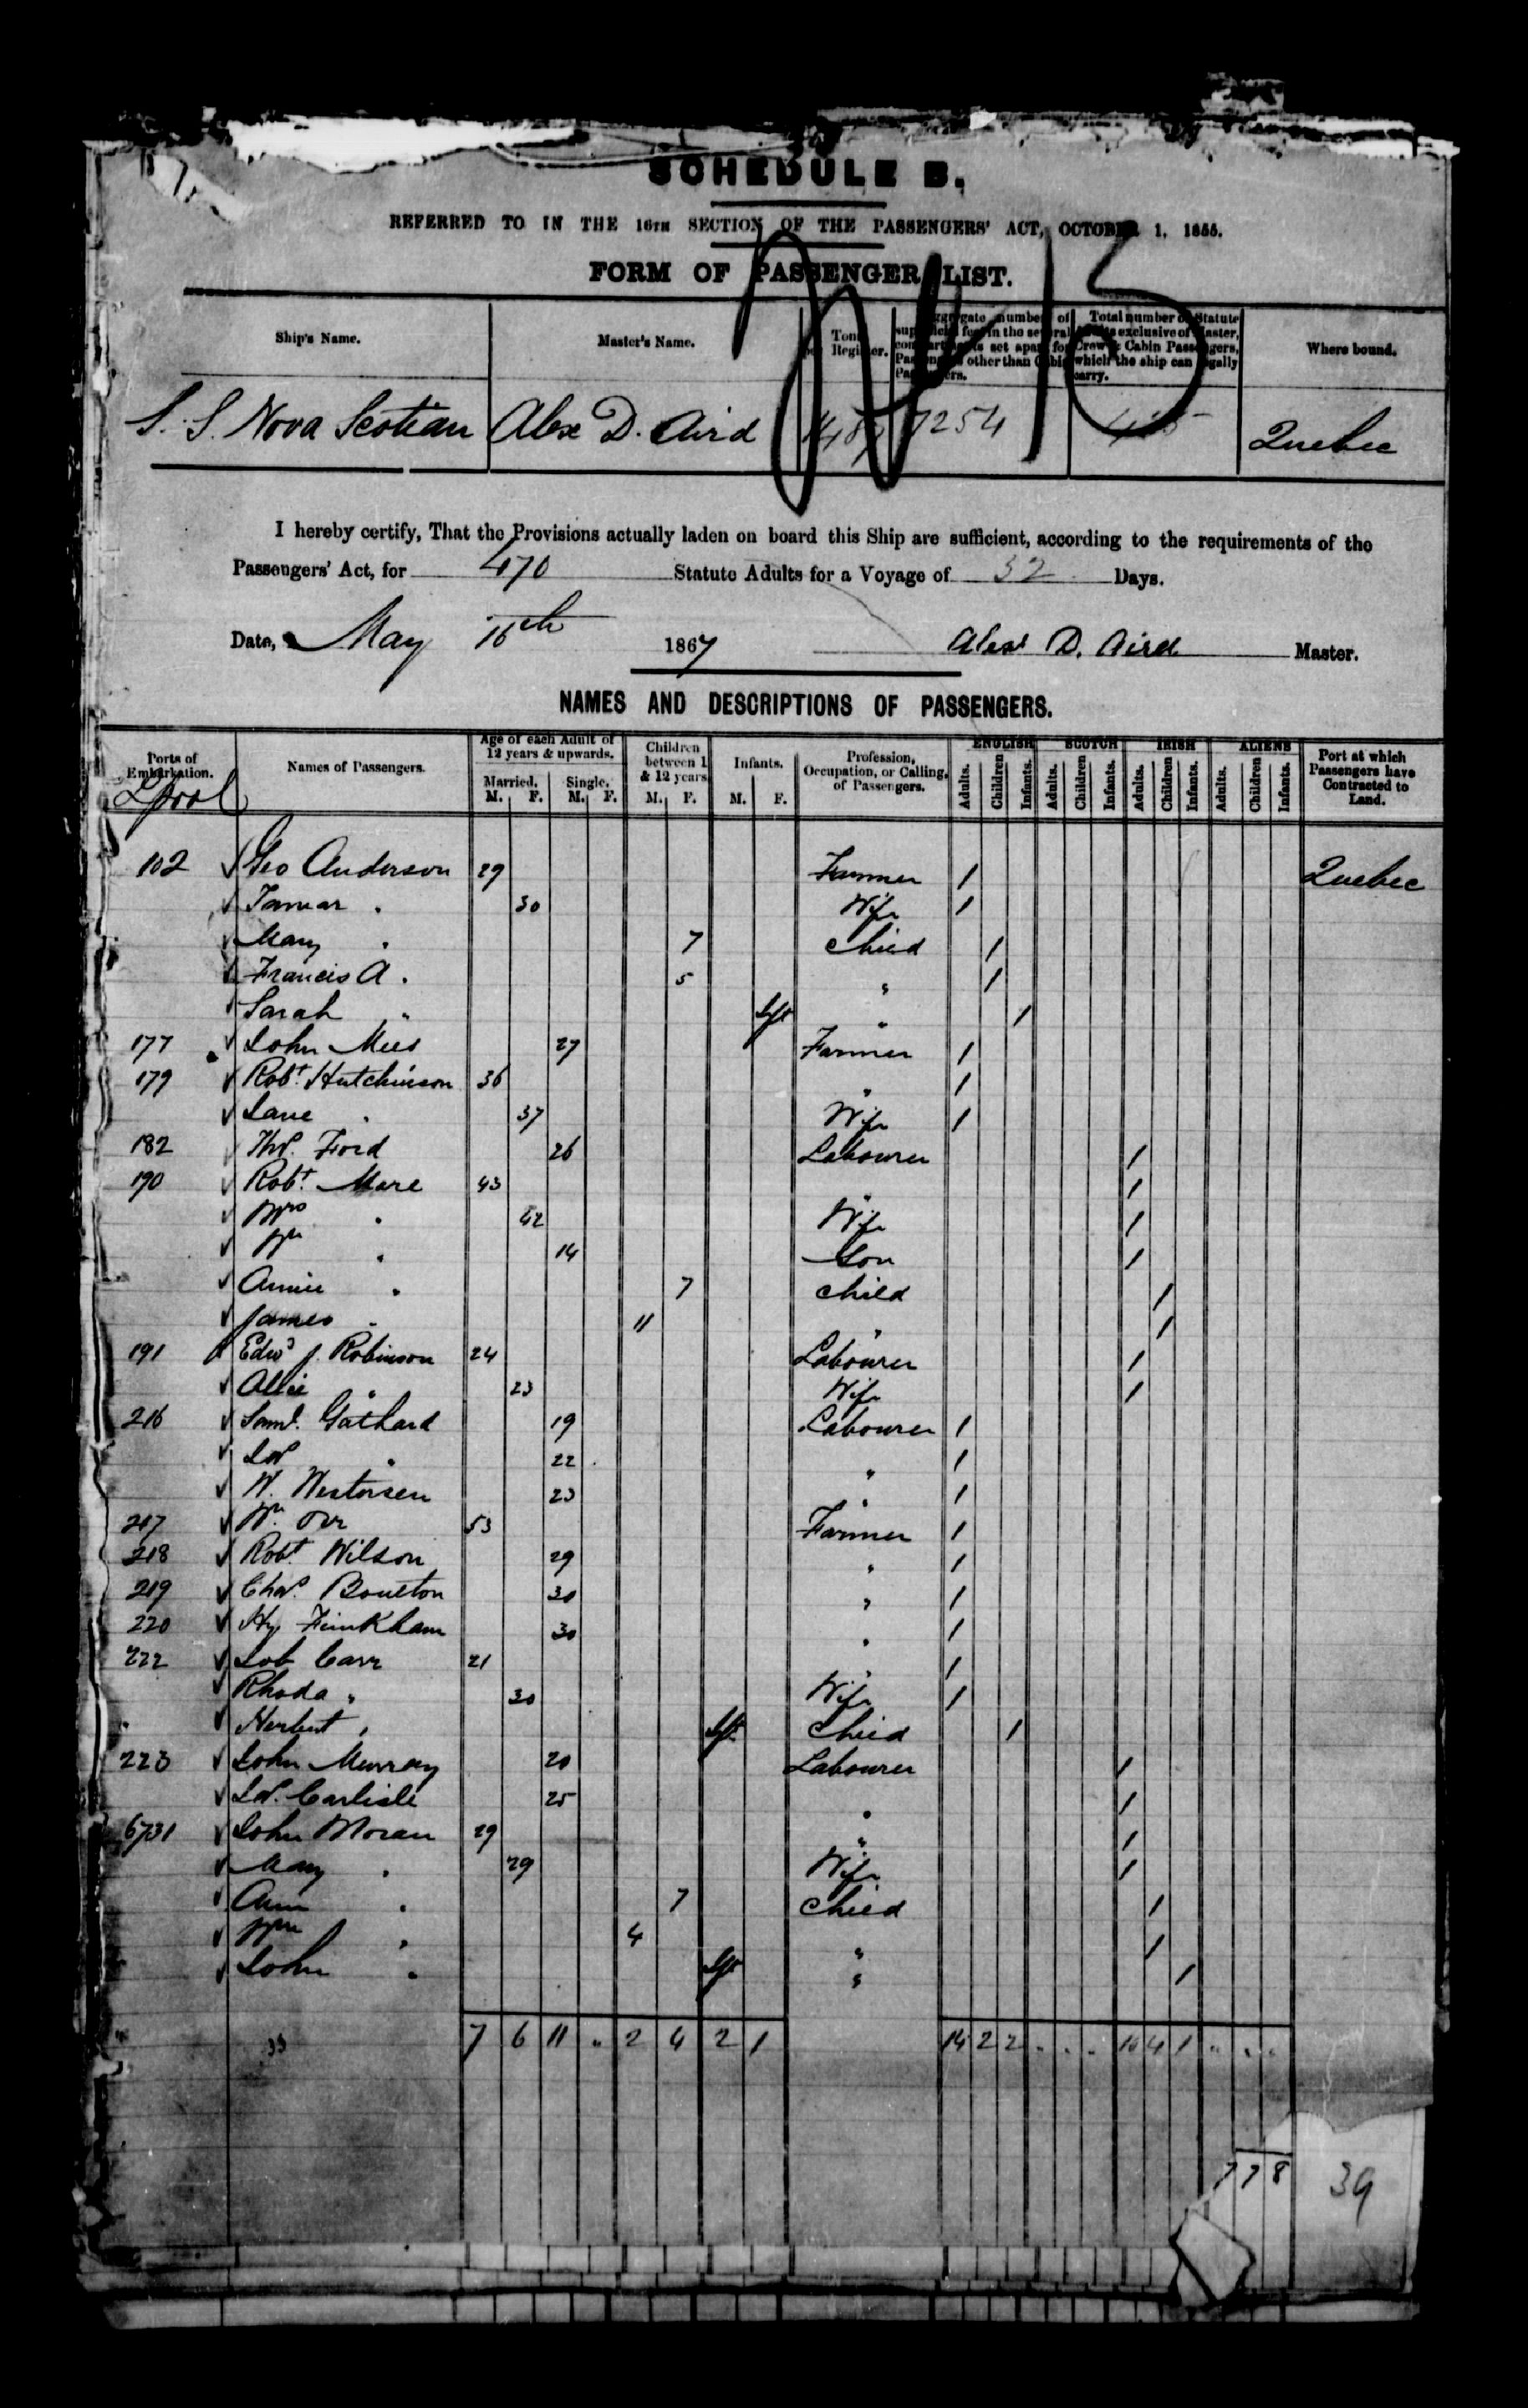 SCHEDULE B.
REFERRED TO IN THE 16TH SECTION OF THE PASSENGERS' ACT, OCTOBER 1, 1855.
FORM OF PASSENGER LIST.
Ship's Name. Master's Name. Tons per Register. Aggregate number of superficial feet in the several compartments set apart for Passengers other than Cabin Passengers. Total number of Statute Adults exclusive of Master, Crew & Cabin Passengers, which the ship can legally carry. Where bound.
S. S. Nova Scotian Alex D. Aird 1487 7254 Quebec
I hereby certify, That the Provisions actually laden on board this Ship are sufficient, according to the requirements of the
Passengers' Act, for 470 Statute Adults for a Voyage of 32 Days.
Date, May 16th 1867 Alexr D. Aird Master.
NAMES AND DESCRIPTIONS OF PASSENGERS.
Ports of Embarkation. Names of Passengers. Age of each Adult of 12 years & upwards. Children between 1 & 12 years Infants. Profession, Occupation, or Calling, of Passengers. ENGLISH SCOTCH IRISH ALIENS Port at which Passengers have Contracted to Land.
Married. Single.
M. F. M. F. M. F. M. F. Adults. Children Infants. Adults. Children Infants. Adults. Children Infants. Adults. Children Infants.
Lpool
102 Geo Anderson 29 Farmer 1 Quebec
Tamar " 30 Wife 1
Mary " 7 Child 1
Francis A. 5 " 1
Sarah " Inft " 1
177 John Mees 27 Farmer 1
179 Robt Hutchinson 36 " 1
Jane " 37 Wife 1
182 Thos. Ford 26 Labourer 1
190 Robt. Mare 43 " 1
Mrs " 42 Wife 1
Wm " 14 Son 1
Annie " 7 Child 1
James " 11 " 1
191 Edwd J. Robinson 24 Labourer 1
Allie " 23 Wife 1
216 Saml. Gathard 19 Labourer 1
" 22 " 1
W. 23 " 1
217 Wm Orr 53 Farmer 1
218 Robt Wilson 29 " 1
219 Chas. Boulton 30 " 1
220 Hy 30 " 1
222 Job Carr 21 " 1
Rhoda " 30 Wife 1
Herbert " Inft Child 1
223 John Murray 20 Labourer 1
Carlisle 25 " 1
6731 John Moran 29 " 1
Mary " 29 Wife 1
Ann " 7 Child 1
Wm " 4 " 1
John " Inft " 1
33 7 6 11 " 2 4 2 1 14 2 2 " " " 10 4 1 " " "
7 7 8 39